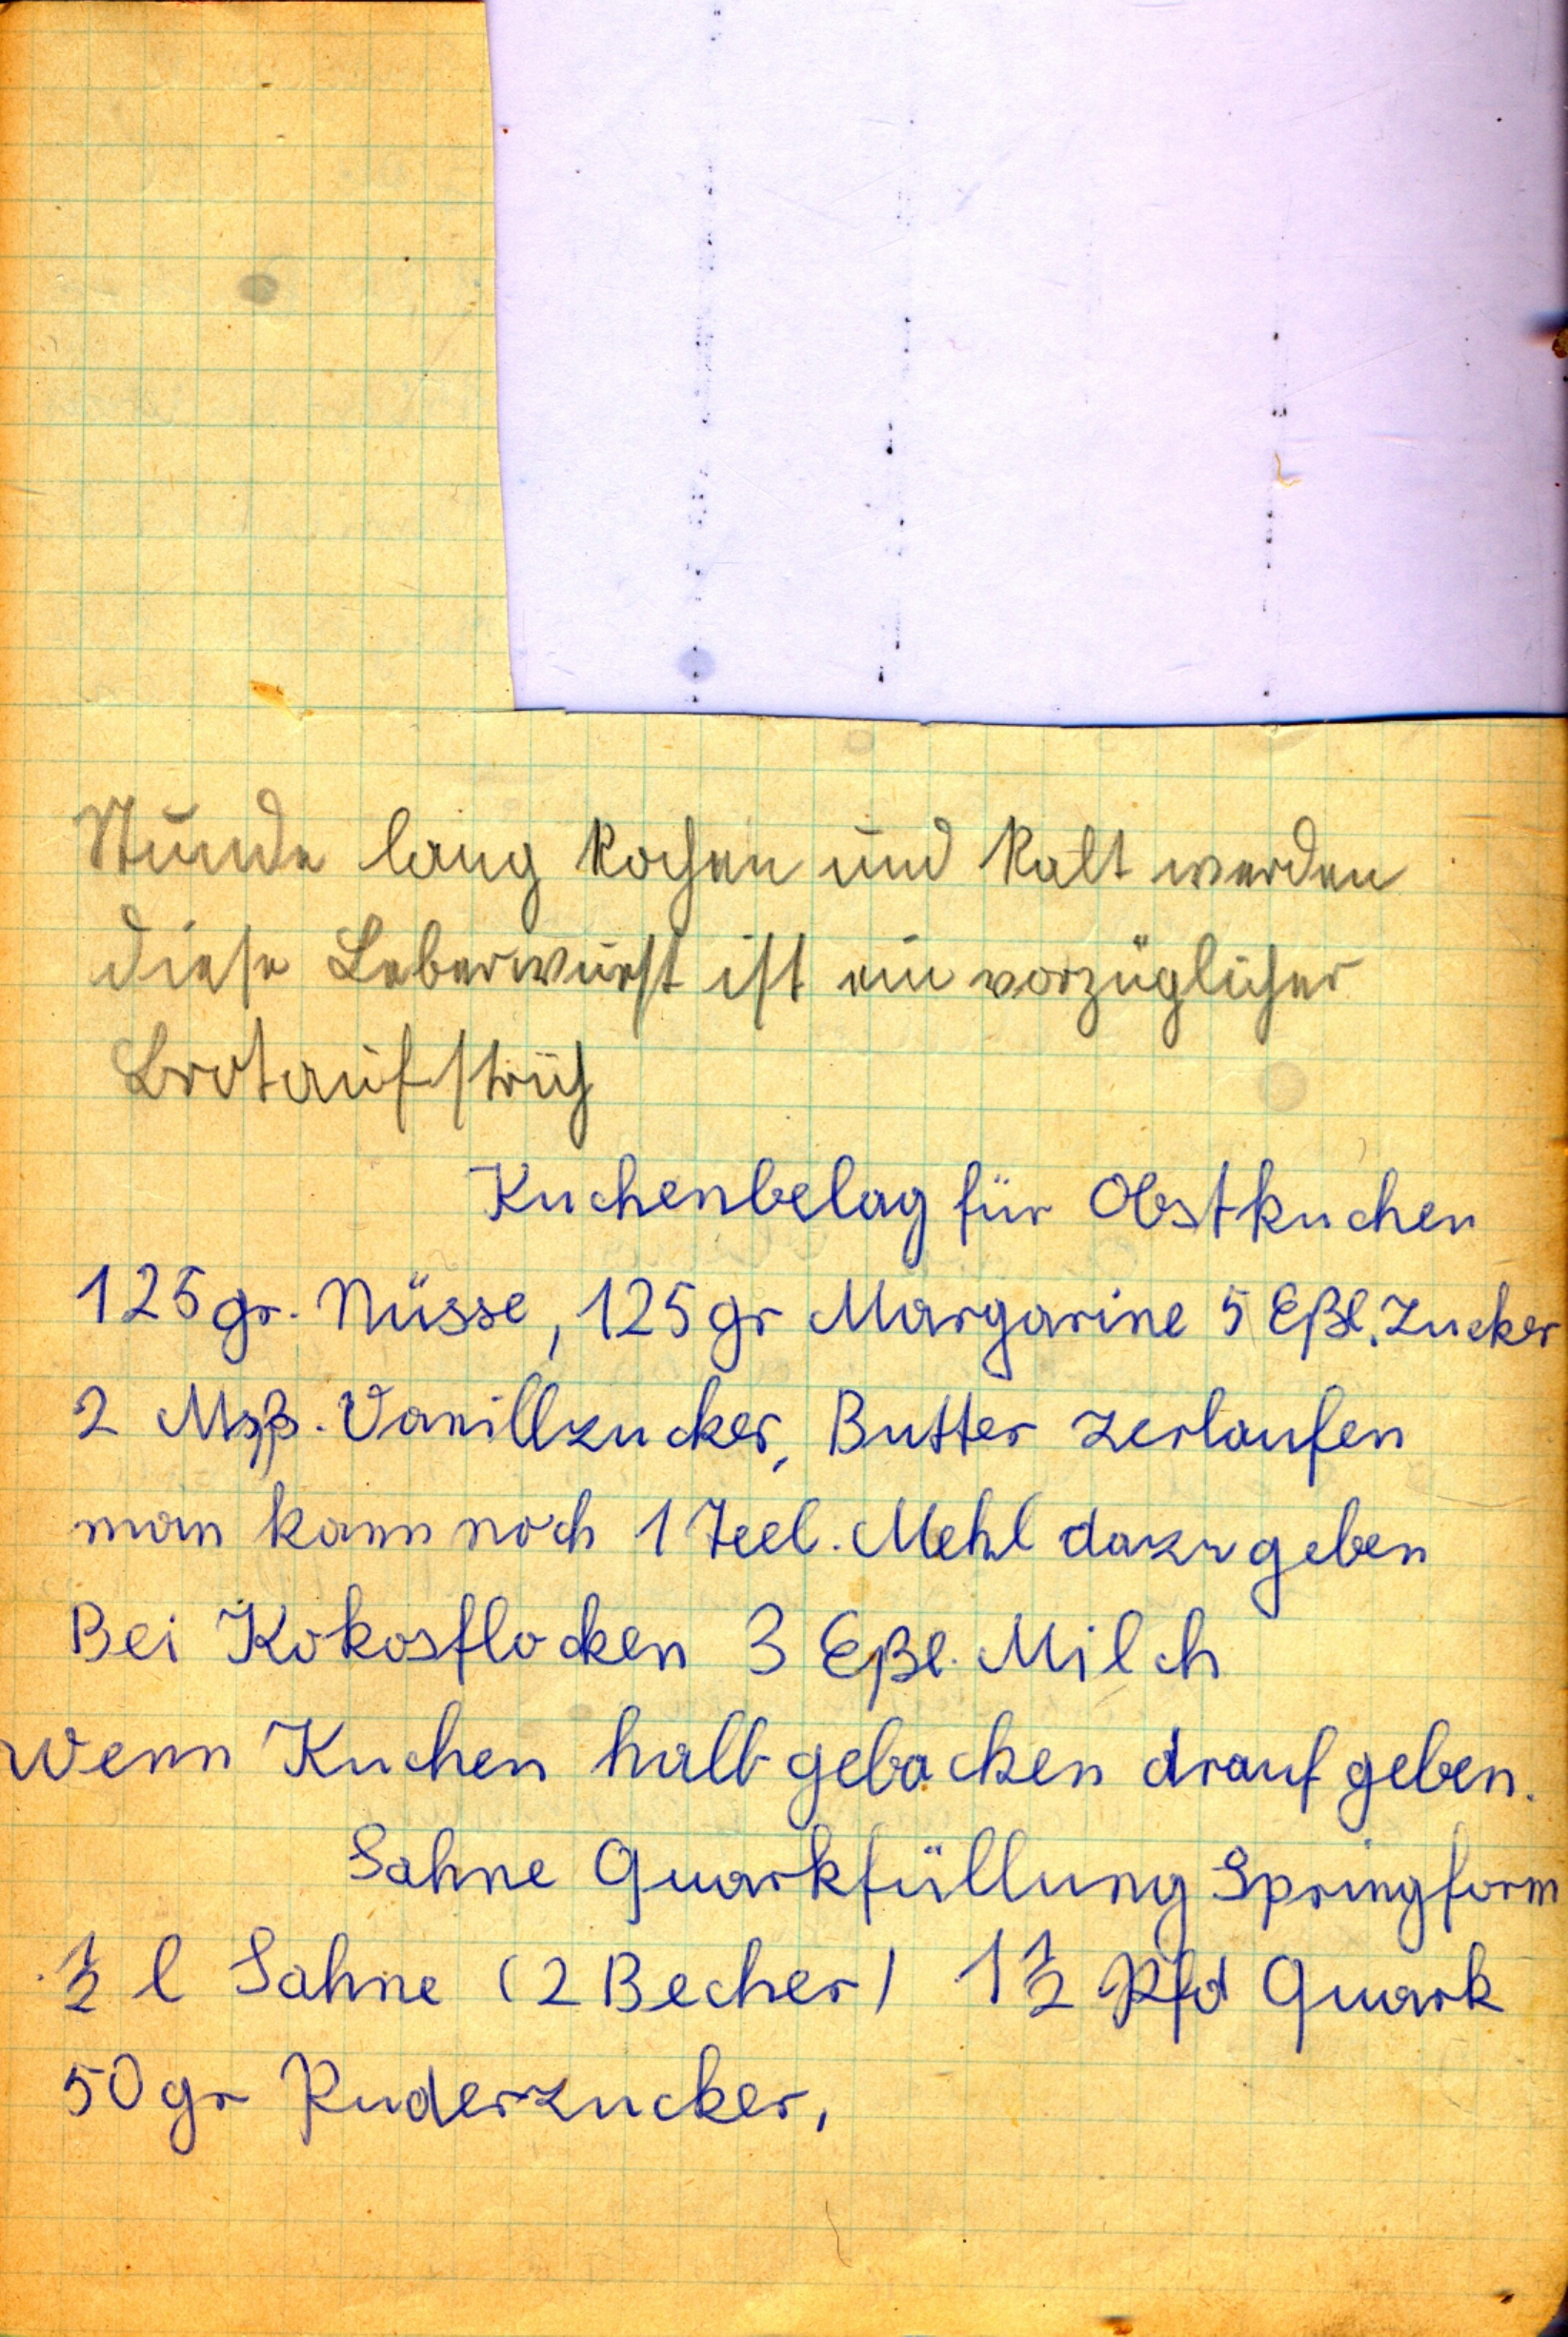 Stunde lang kochen und kalt werden
diese Leberwurst ist ein vorzüglicher
Brotaufstrich
Kuchenbelag für Obstkuchen
125gr. Nüsse, 125gr Margarine 5 Eßl. Zucker
2 Msp. Vanillzucker, Butter zerlaufen
man kann noch 1 Teel. Mehl dazu geben
Bei Kokosflocken 3 Eßl. Milch
Wenn Kuchen halb gebacken drauf geben.
Sahne Quarkfüllung Springform
½ l Sahne (2 Becher) 1½ Pfd Quark
50gr Puderzucker,